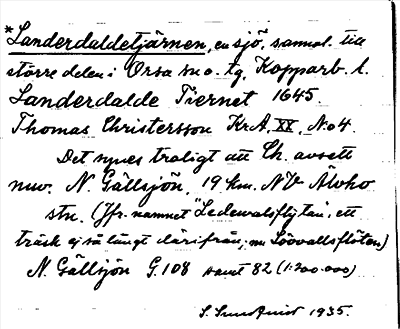 *Landerdaldetjärnen, en sjö, sannol. till
större delen i Orsa sn o. tg, Kopparb. l.
Landerdalde Tiernet 1645.
Thomas Christersson Kr.A. XX, No 4.
Det synes troligt att Ch. avsett
nuv. N. Gällsjön, 19 km. NV Älvho
stn. (Jfr. namnet "Ledewalsflÿtan", ett
träsk ej så långt därifrån; nu Löövallsflöten)
N. Gällsjön G. 108 samt 82 (1:200.000)
S. Sundquist 1935.